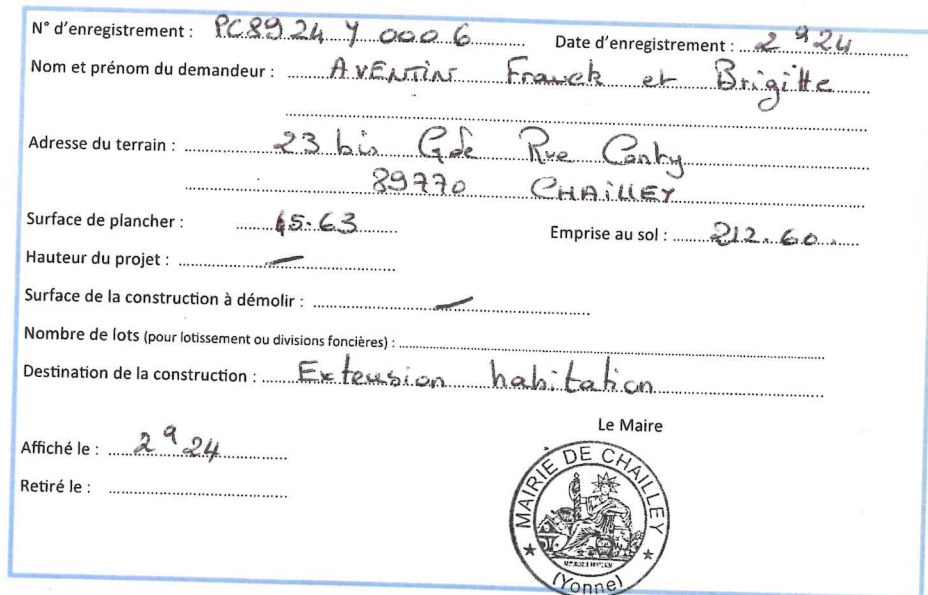 N° d'enregistrement : PC8924 Y 0006 Date d'enregistrement : 2 9 24
Nom et prénom du demandeur : AVENTIN Franck et Brigitte
Adresse du terrain : 23 bis Gde Rue
89770 CHAILLEY
Surface de plancher : 45.63 Emprise au sol : 212.60
Hauteur du projet : —
Surface de la construction à démolir : —
Nombre de lots (pour lotissement ou divisions foncières) :
Destination de la construction : Extension habitation
Le Maire
Affiché le : 2 9 24
Retiré le :
MAIRIE DE CHAILLEY
(Yonne)